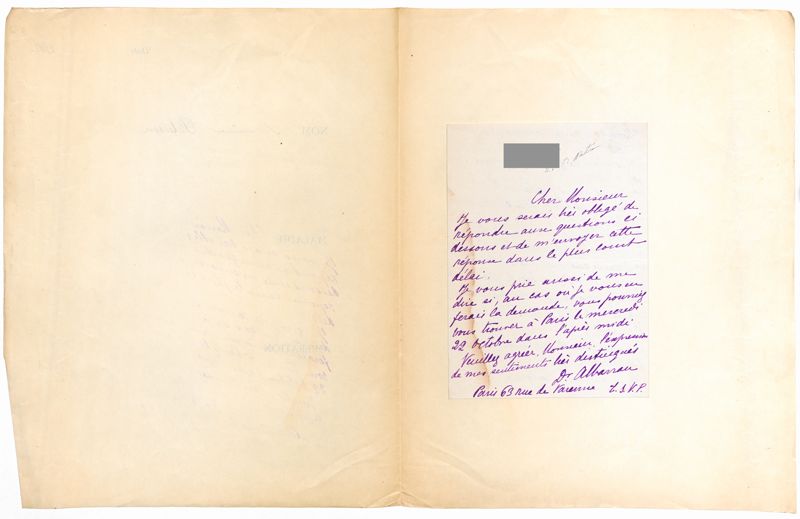 Cher Monsieur
Je vous serais très obligé de
répondre aux questions ci
dessous et de m'envoyer cette
réponse dans le plus court
délai.
Je vous prie aussi de me
dire si, au cas où je vous en
ferais la demande, vous pourriez
vous trouver à Paris le mercredi
22 octobre dans l'après midi
Veuillez agréer, Monsieur, l'expression
de mes sentiments très distingués
Dr Albarran
Paris 63 rue de Varenne T.S.V.P.
NOM
MALADIE
OPÉRATION